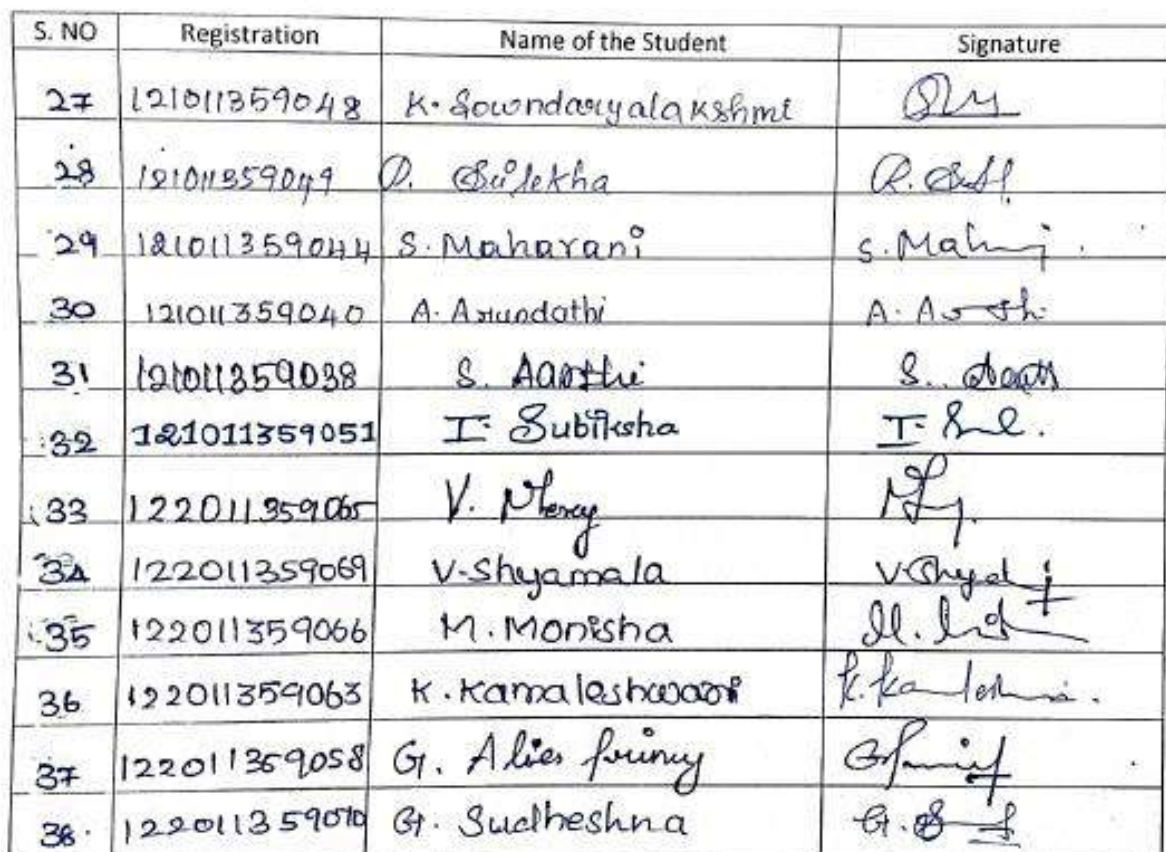 S. NO Registration Name of the Student Signature
27 121011359048 K. Sowndaryalakshmi
28 121011359049 Sulekha
29 121011359044 S. Maharani S. Mah
30 121011359040 A. Arundathi A.
31 121011359038 S. Aarthi S.
32 121011359051 I. Subiksha I.
33 122011359065 V. Mercy
34 122011359069 V. Shyamala
35 122011359066 M. Monisha
36 122011359063 K. Kamaleshwari K.
37 122011359058 G. Alies
38. 122011359070 G. Sudheshna G.